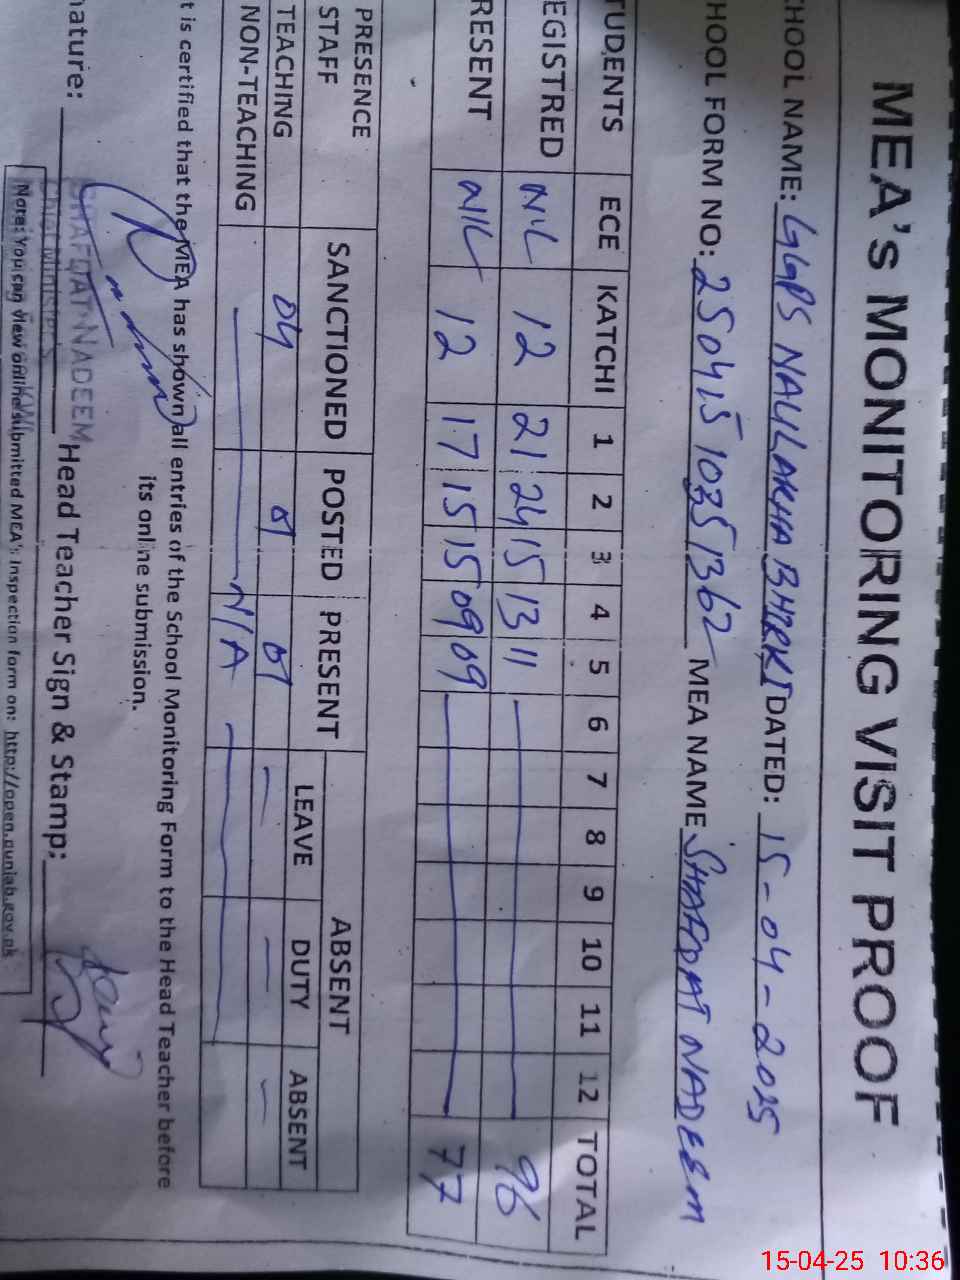 MEA's MONITORING VISIT PROOF
CHOOL NAME: GGPS NAULAKHA BHARKI DATED: 15-04-2025
HOOL FORM NO: MEA NAME SHAFQAT NADEEM
TUDENTS ECE KATCHI 1 2 3 4 5 6 7 8 9 10 11 12 TOTAL
EGISTRED NIL 12 21 24 15 13 11 96
RESENT NIL 12 17 15 15 09 09 77
PRESENCE STAFF SANCTIONED POSTED PRESENT ABSENT
LEAVE DUTY ABSENT
TEACHING 04
NON-TEACHING N/A
t is certified that the MEA has shown all entries of the School Monitoring Form to the Head Teacher before
its online submission.
nature: SHAFQAT NADEEM Head Teacher Sign & Stamp:
Chief Minister's
Note: You can view online submitted MEA's Inspection form on: http://open.punjab.gov.pk
15-04-25 10:36